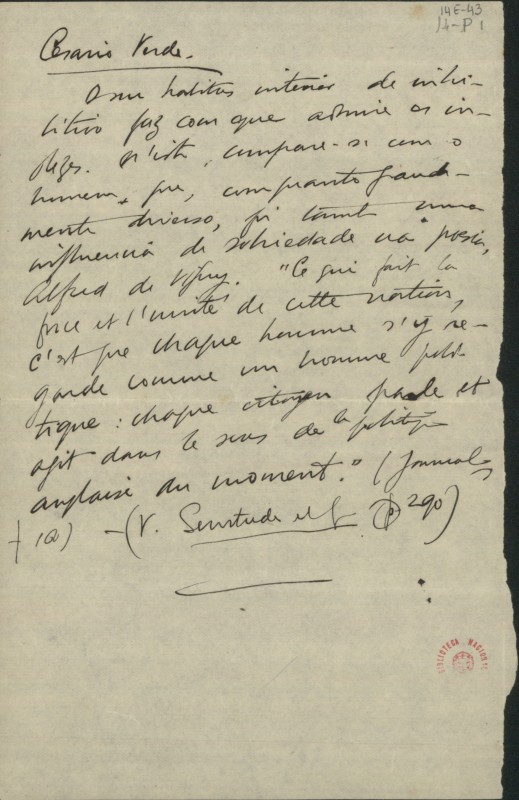 14E-43
Cesario Verde.
O seu habitus interior de inhi-
bitivo faz com que admire os in-
glezes. N'isto, compare-se com o
homem, que, comquanto grande-
mente diverso, foi tambem uma
influencia de sobriedade na poesia,
Alfred de Vigny. "Ce qui fait la
force et l'unité de cette nation,
c'est que chaque homme s'y re-
garde comme un homme poli-
tique: chaque citoyen parle et
agit dans le sens de la politique
anglaise du moment." (Journal
(V. p 290)
BIBLIOTECA NACIONAL